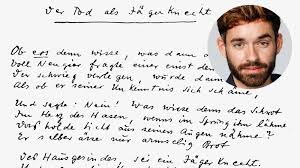 Der Tod als Jägerknecht
Ob er's denn wisse, was dann
voll Neugier fragte einer einst den
Der schwieg verlegen, würde dann
Als ob er seiner Unkenntnis sich schäme,
Und sagte: Nein! Was wisse denn das Schrot
Im Herz des Hasen, wenn's im Sprung ihn lähme
Und holde Licht aus seinen Augen nähme?
Er selber ässe nur armselig Brot
Des Hausgesindes, sei ein Jägerknecht.